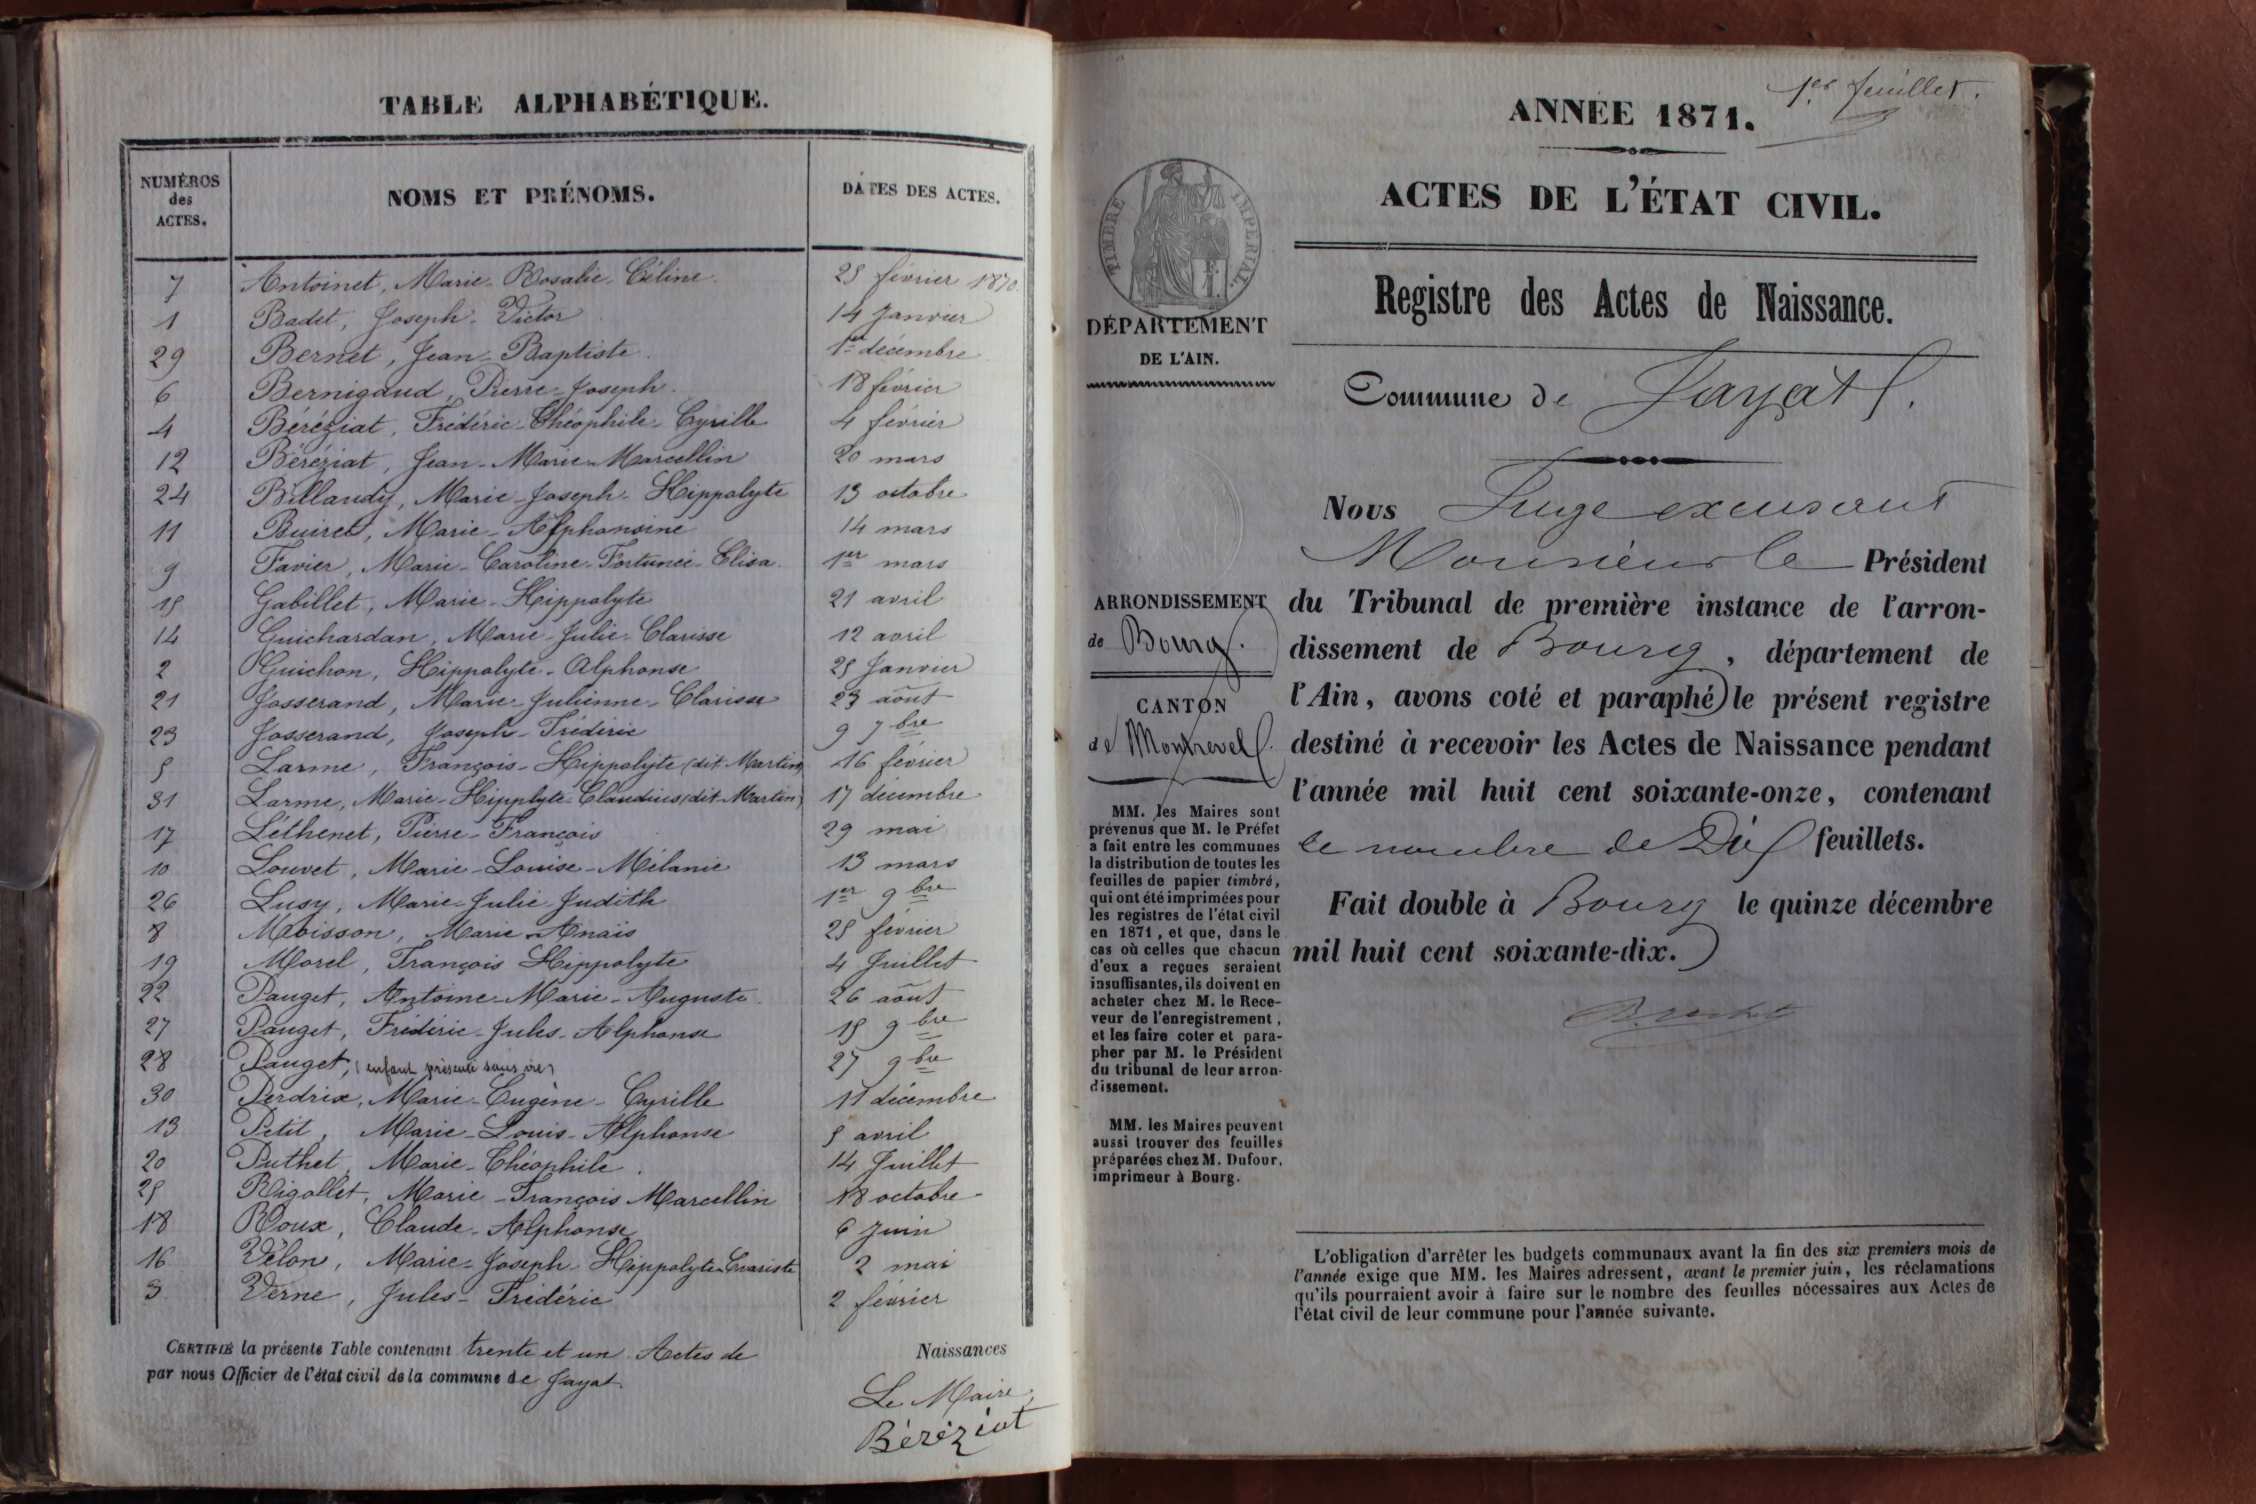 TABLE ALPHABÉTIQUE.
NUMÉROS des ACTES. NOMS ET PRÉNOMS. DATES DES ACTES.
7 Antoinet, Marie-Rosalie-Céline. 25 février 1870.
1 Badet, Joseph-Victor 14 Janvier
29 Bernet, Jean-Baptiste. 1er décembre
6 Bernigaud, Pierre-Joseph. 18 février
4 Béréziat, Frédéric-Théophile-Cyrille 4 février
12 Béréziat, Jean-Marie-Marcellin 20 mars
24 Billaudy, Marie-Joseph-Hippolyte 13 octobre
11 Buiret, Marie-Alphonsine 14 mars
9 Favier, Marie-Caroline-Fortunée-Elisa. 1er mars
15 Gabillet, Marie-Hippolyte 21 avril
14 Guichardan, Marie-Julie-Clarisse 12 avril
2 Guichon, Hippolyte-Alphonse 25 Janvier
21 Josserand, Marie-Julienne-Clarisse 23 août
23 Josserand, Joseph-Frédéric 9 7bre
5 Larme, François-Hippolyte (dit Martin) 16 février
31 Larme, Marie-Hipplyte-Claudius (dit Martin) 17 décembre
17 Léthenet, Pierre-François 29 mai
10 Louvet, Marie-Louise-Mélanie 13 mars
26 Lusy, Marie-Julie-Judith 1er 9bre
8 Moisson, Marie-Anaïs 25 février
19 Morel, François Hippolyte 4 Juillet
22 Pauget, Antoine-Marie-Auguste. 26 août
27 Pauget, Frédéric-Jules-Alphonse 15 9bre
28 Pauget, (enfant présenté sans vie) 27 9bre
30 Perdrix, Marie-Eugène-Cyrille 11 décembre
13 Petit, Marie-Louis-Alphonse 5 avril
20 Puthet, Marie-Théophile. 14 Juillet
25 Rigollet, Marie-François Marcellin 18 octobre
18 Roux, Claude-Alphonse 6 Juin
16 Vélon, Marie-Joseph-Hippolyte-Evariste 2 mai
3 Verne, Jules-Frédéric 2 février
CERTIFIÉ la présente Table contenant trente et un Actes de Naissances
par nous Officier de l'état civil de la commune de Jayat.
Le Maire,
Béréziat
1er feuillet.
ANNÉE 1871.
ACTES DE L'ÉTAT CIVIL.
TIMBRE IMPÉRIAL.
Registre des Actes de Naissance.
DÉPARTEMENT
DE L'AIN.
Commune de Jayat.
ARRONDISSEMENT
de Bourg.
CANTON
de Montrevel.
MM. les Maires sont
prévenus que M. le Préfet
a fait entre les communes
la distribution de toutes les
feuilles de papier timbré,
qui ont été imprimées pour
les registres de l'état civil
en 1871, et que, dans le
cas où celles que chacun
d'eux a reçues seraient
insuffisantes, ils doivent en
acheter chez M. le Rece-
veur de l'enregistrement,
et les faire coter et para-
pher par M. le Président
du tribunal de leur arron-
dissement.
MM. les Maires peuvent
aussi trouver des feuilles
préparées chez M. Dufour,
imprimeur à Bourg.
Nous Juge excusant
Monsieur le Président
du Tribunal de première instance de l'arron-
dissement de Bourg, département de
l'Ain, avons coté et paraphé le présent registre
destiné à recevoir les Actes de Naissance pendant
l'année mil huit cent soixante-onze, contenant
le nombre de Dix feuillets.
Fait double à Bourg le quinze décembre
mil huit cent soixante-dix.
L'obligation d'arrêter les budgets communaux avant la fin des six premiers mois de
l'année exige que MM. les Maires adressent, avant le premier juin, les réclamations
qu'ils pourraient avoir à faire sur le nombre des feuilles nécessaires aux Actes de
l'état civil de leur commune pour l'année suivante.